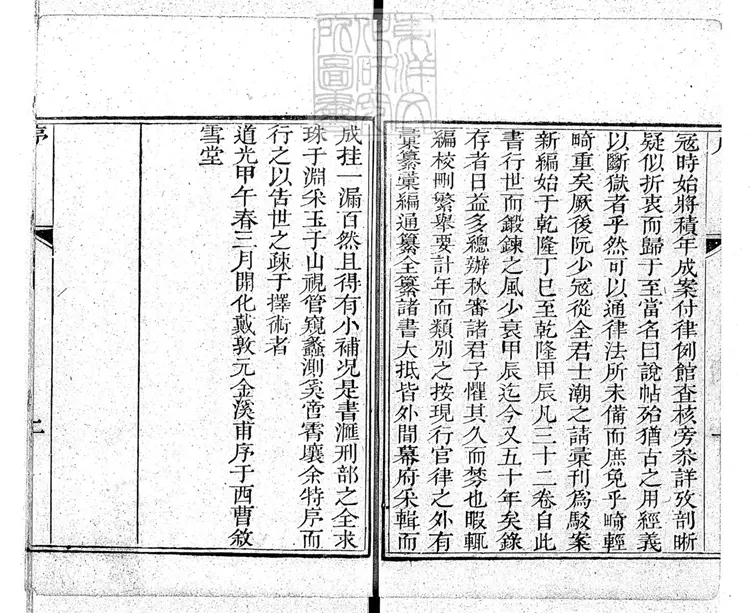 冠時始將積年成案付律例館查核旁參詳攷剖晰
疑似折衷而歸于至當名曰說帖殆猶古之用經義
以斷獄者乎然可以通律法所未備而庶免乎畸輕
畸重矣厥後阮少冠從全君士潮之請彙刊爲駁案
新編始于乾隆丁巳至乾隆甲辰凡三十二卷自此
書行世而鍛鍊之風少衰甲辰迄今又五十年矣錄
存者日益多總辦秋審諸君子懼其久而棼也暇輒
編校刪繁舉要計年而類別之按現行官律之外有
彙纂彙編通纂全纂諸書大抵皆外間幕府采輯而
成挂一漏百然且得有小補况是書滙刑部之全求
珠于淵采玉于山視管窺蠡測奚啻霄壤余特序而
行之以吿世之疎于擇術者
道光甲午春三月開化戴敦元金溪甫序于西曹敘
雪堂
序
二
東洋文化研究所圖書